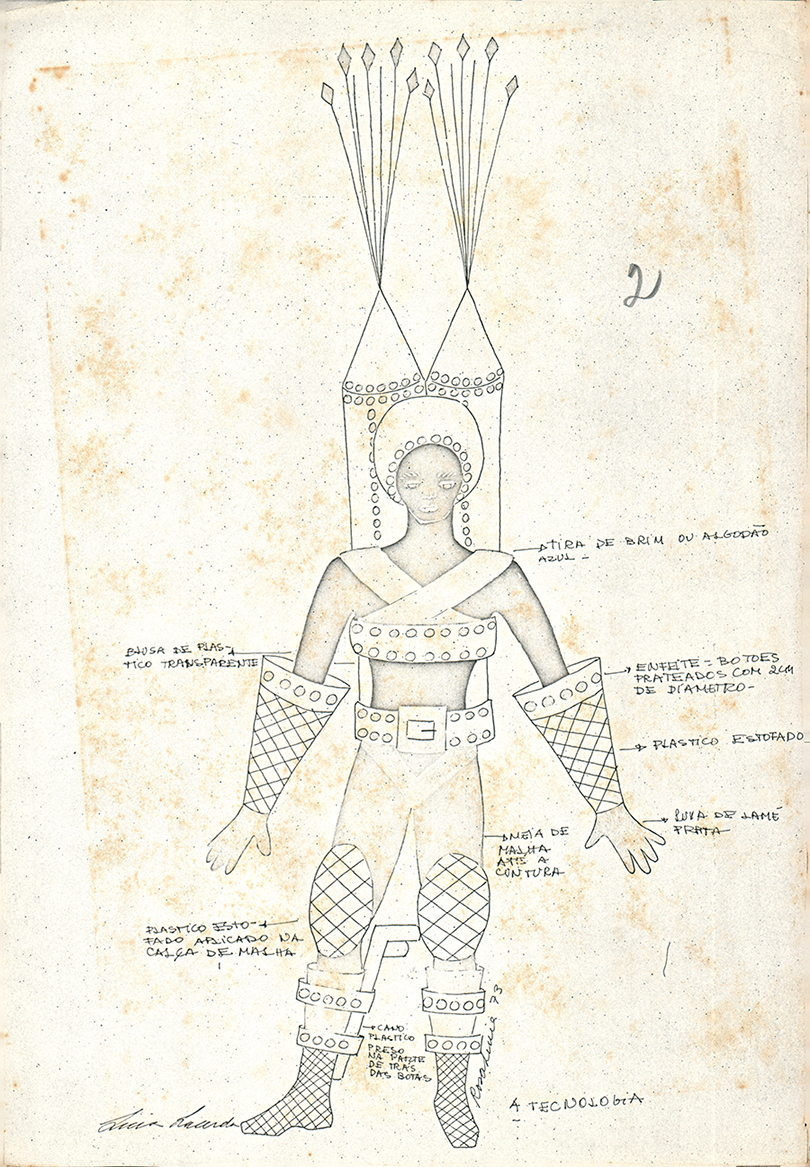 2
→TIRA DE BRIM OU ALGODÃO
AZUL -
BLUSA DE PLAS-
TICO TRANSPARENTE
→ ENFEITE = BOTOES
PRATEADOS COM 2CM
DE DIAMETRO-
→ PLASTICO ESTOFADO
LUVA DE LAMÉ
PRATA
→MEIA DE
MALHA
ATE A
CONTURA
PLASTICO ESTO-
FADO APLICADO NA
CALÇA DE MALHA
→CANO
PLASTICO
PRESO
NA PARTE
DE TRAS
DAS BOTAS
Rosa Lucia 73
A TECNOLOGIA
Licia Lacerda